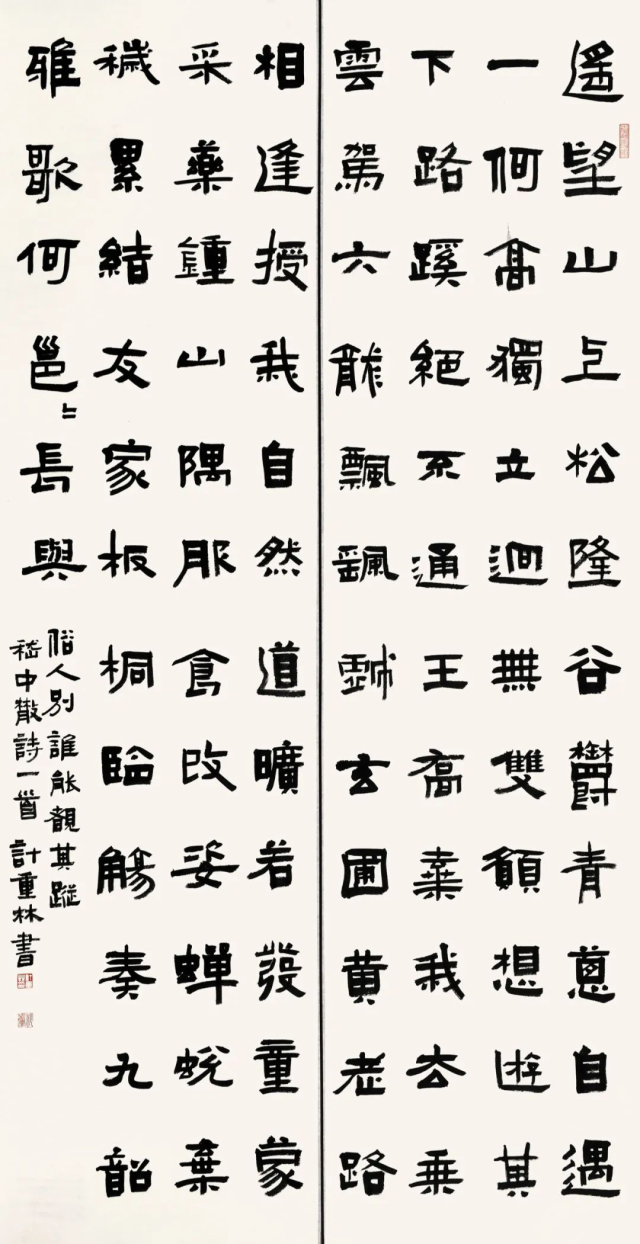 遙望山上松隆谷鬱青蔥自遇
一何高獨立迥無雙願想遊其
下路蹊絕不通王喬棄我去乘
雲駕六龍飄颻戲玄圃黃老路
相逢授我自然道曠若發童蒙
采藥鍾山隅服食改姿蟬蛻棄
穢累結友家板桐臨觴奏九韶
雅歌何邕〻長與
俗人別誰能覩其蹤
嵇中散詩一首 計重林書